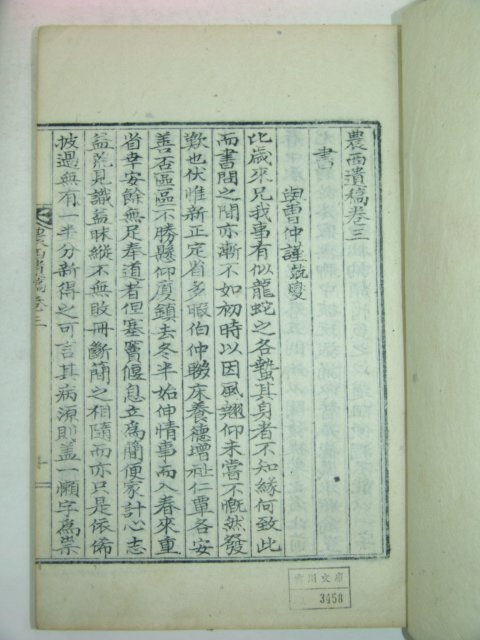 農西遺稿卷三
書
與曹仲謹兢燮
比歲來兄我事有似龍蛇之各蟄其身者不知緣何致此
而書問之間亦漸不如初時以因風翹仰未嘗不慨然發
歎也伏惟新正定省多暇伯仲聯床養德增祉仁覃各安
善否區區不勝懸仰廈鎮去冬半始伸情事而入春來重
省幸安餘無足奉道者但塞竇偃息立為簡便家計心志
益荒見識益昧縱不無敗冊斷簡之相隨而亦只是依俙
披過無有一半分新得之可言其病源則盖一懶字為祟
農西遺稿卷三
文庫
3458